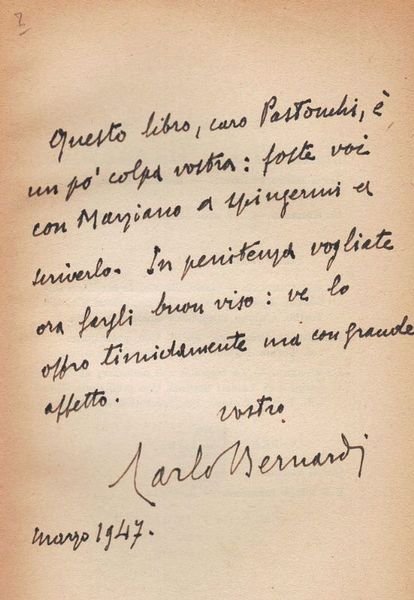 Questo libro, caro Pastonchi, è
un pò colpa vostra: foste voi
con Marziano a spingermi a
scriverlo. In penitenza vogliate
ora fargli buon viso: ve lo
offro timidamente ma con grande
affetto.
vostro
Carlo Bernardi
marzo 1947.